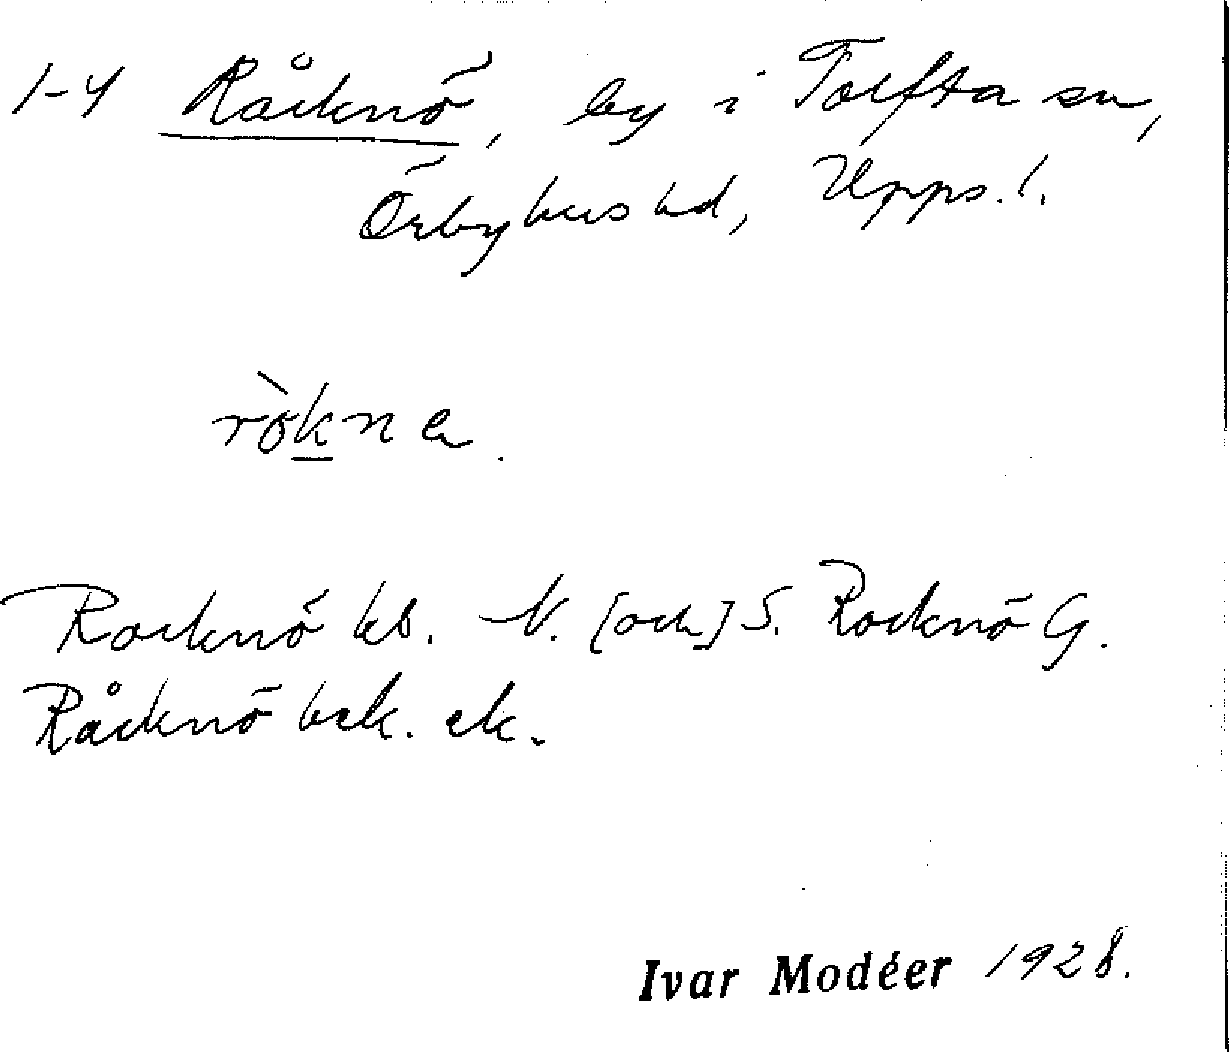 1-4 Råcknö, by i Tolfta sn,
Örbyhus hd, Upps. l.
ròkna.
Rocknö kb. N. [och] S. Rocknö G.
Råcknö bek. ek.
Ivar Modéer 1928.